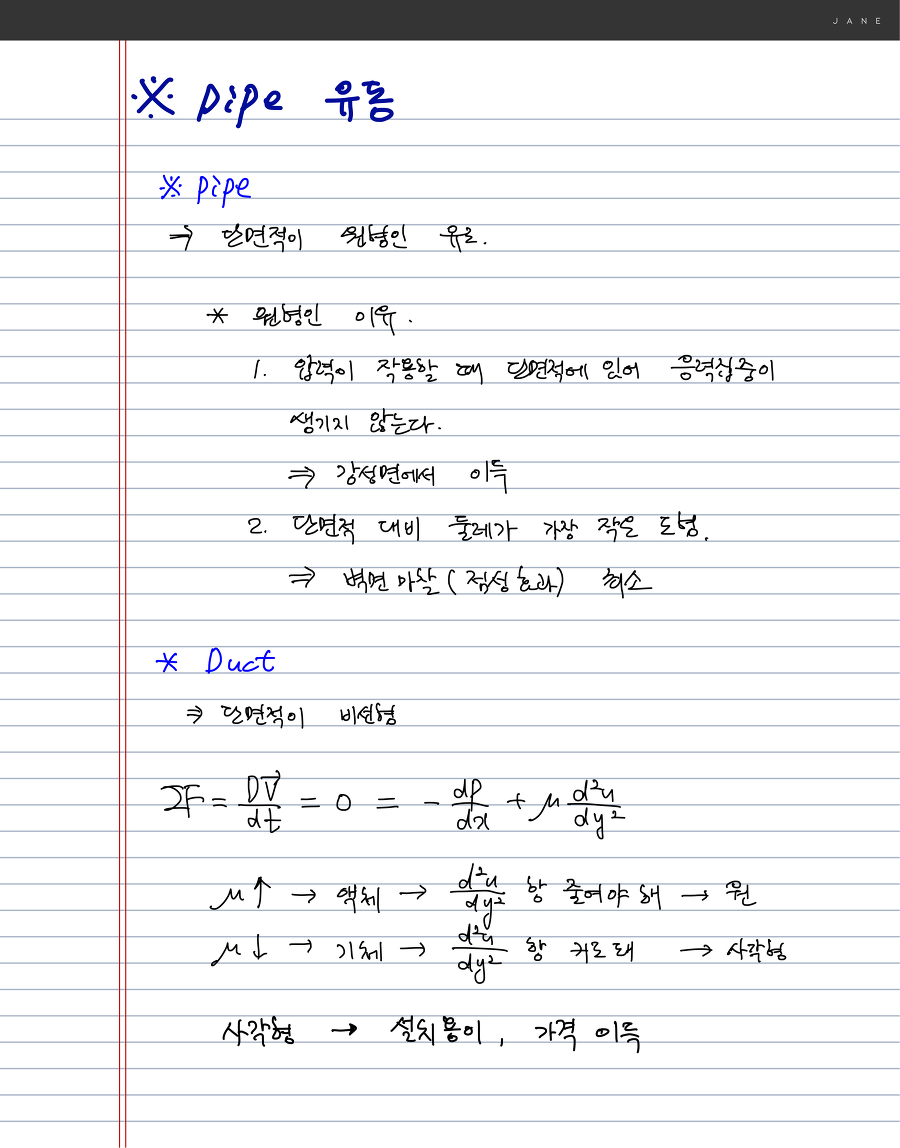 JANE
※ pipe 유동
※ pipe
⇒ 단면적이 원형인 유로.
* 원형인 이유.
1. 압력이 작용할 때 단면적에 있어 응력집중이
생기지 않는다.
⇒ 강성면에서 이득
2. 단면적 대비 둘레가 가장 작은 도형.
⇒ 벽면마찰(점성효과) 최소
* Duct
⇒ 단면적이 비선형
ΣF = DV⃗/dt = 0 = -dp/dx + μ d²u/dy²
μ↑ → 액체 → d²u/dy² 항 줄여야해 → 원
μ↓ → 기체 → d²u/dy² 항 커도돼 → 사각형
사각형 → 설치용이, 가격 이득